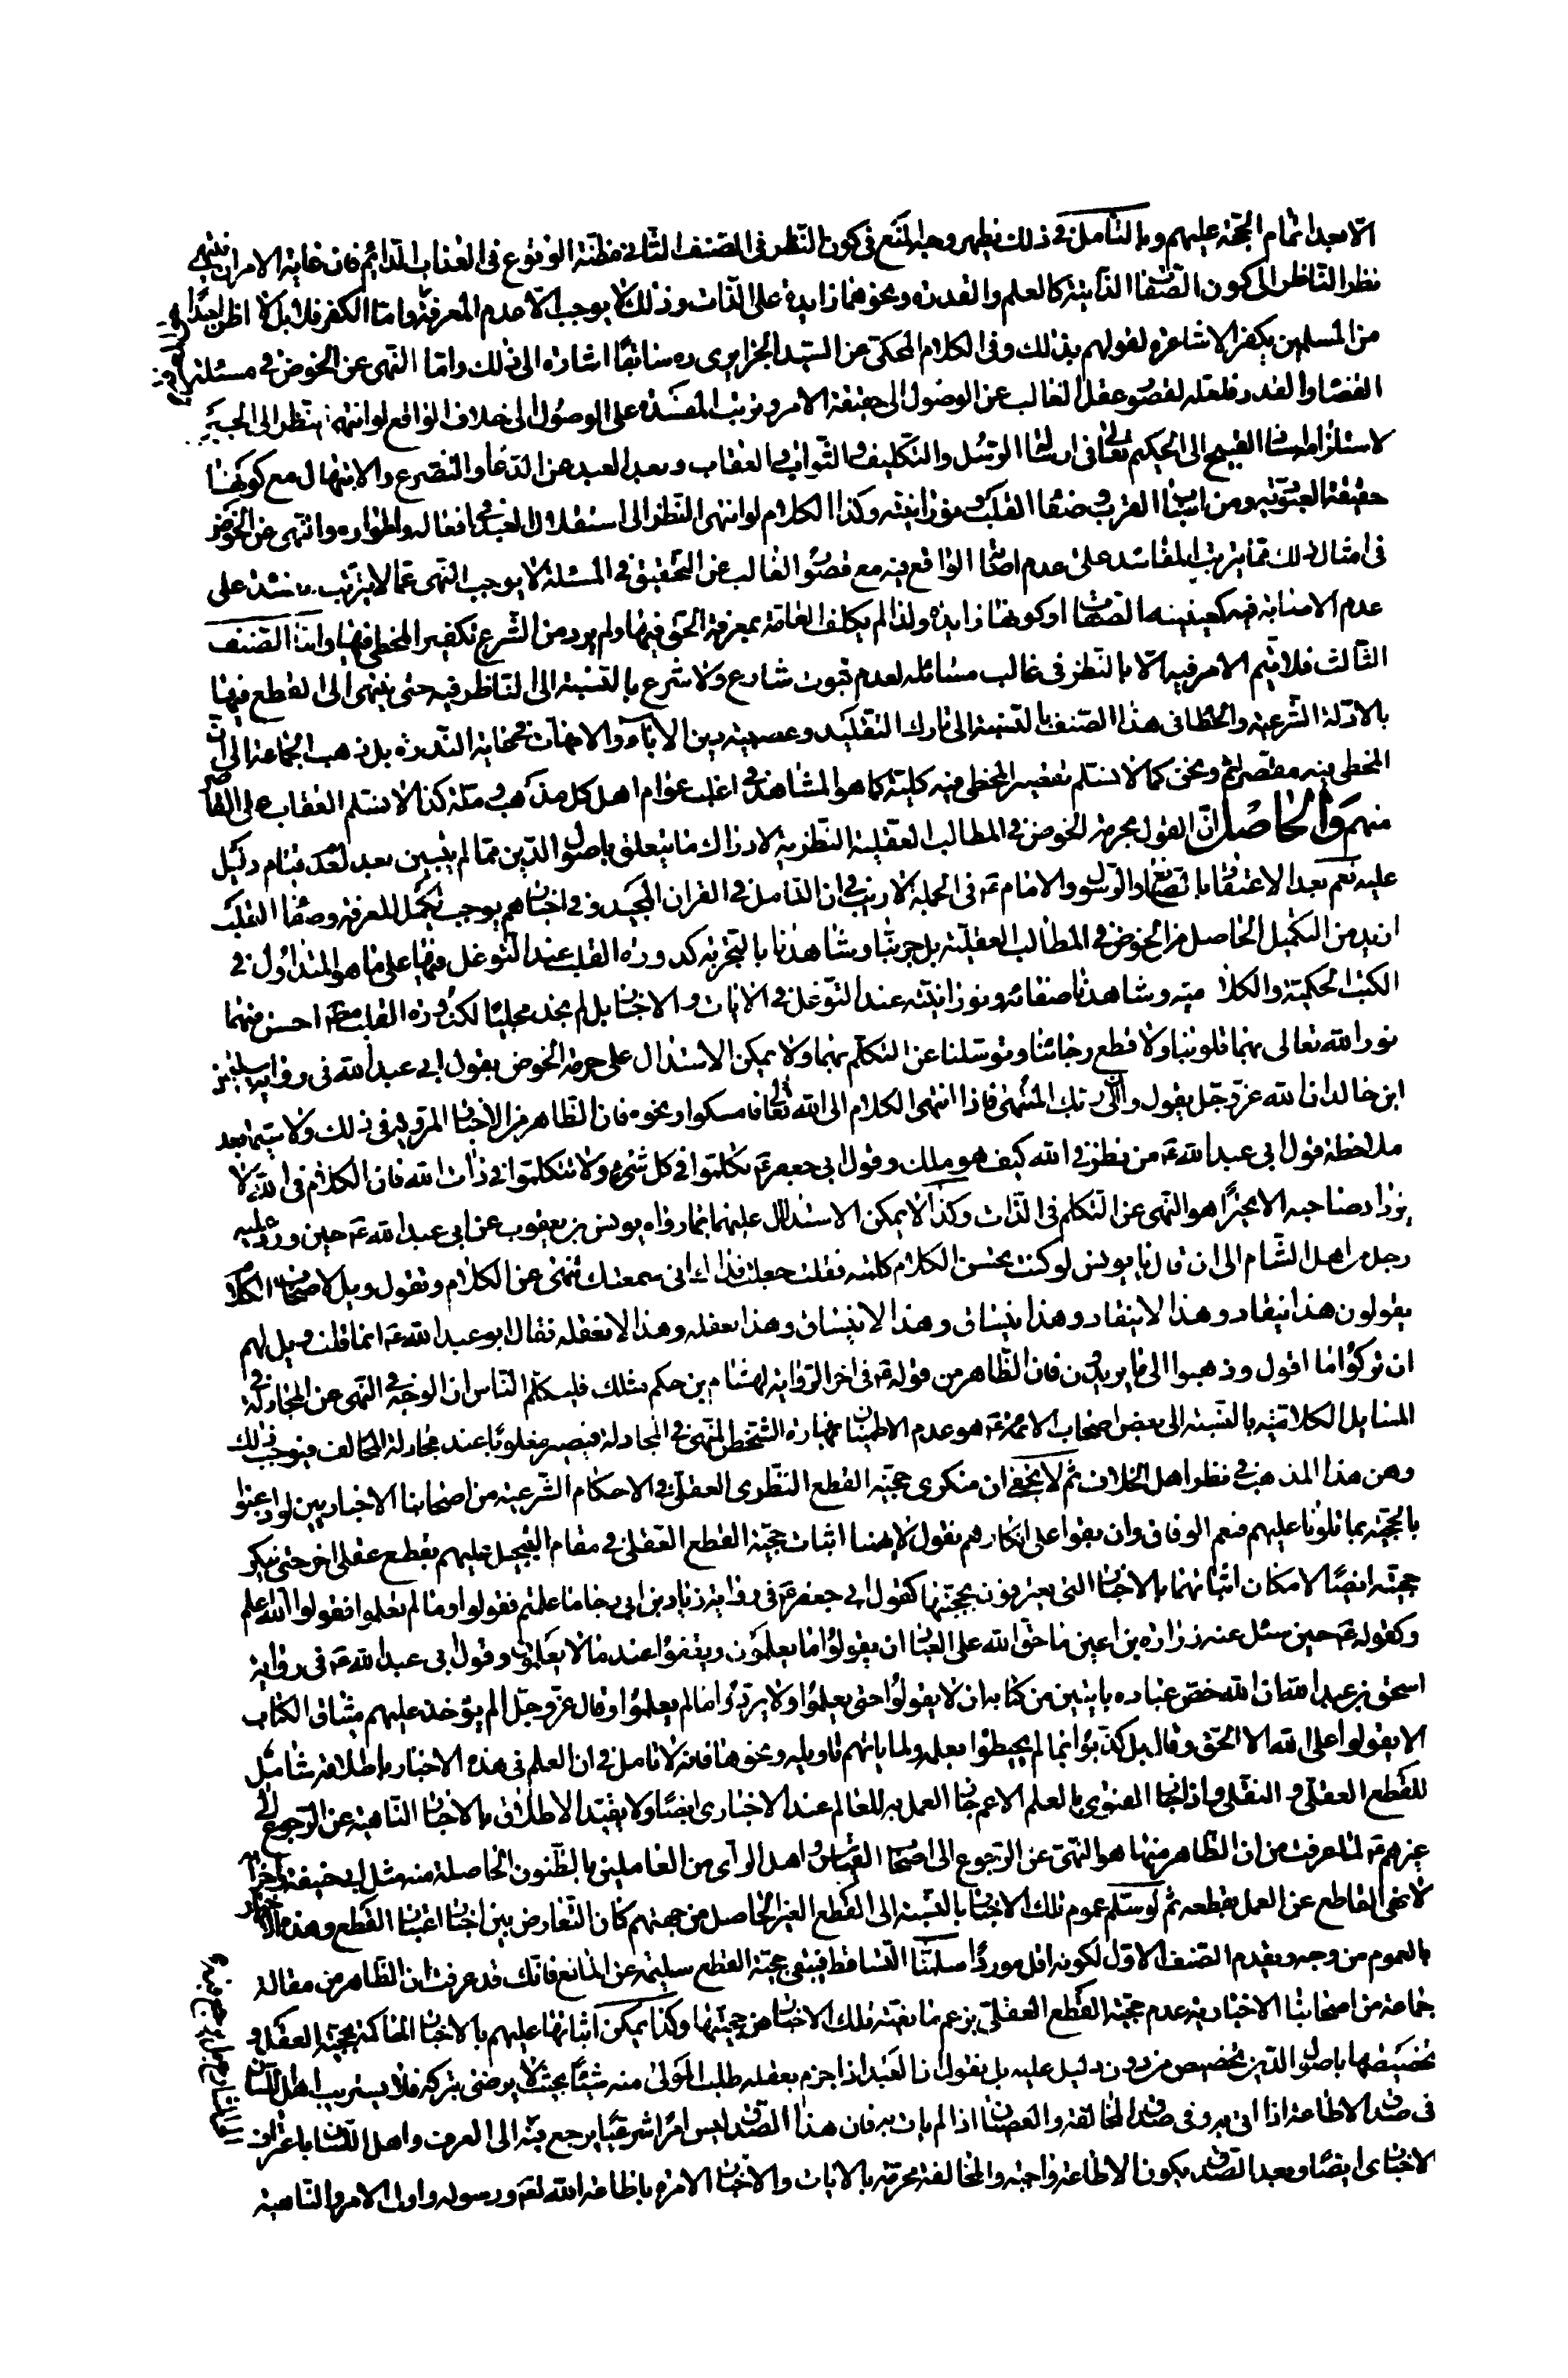 الا بعد اتمام الحجة عليهم وبالتامل في ذلك يظهر وجه المنع في كون النظر في الصنف الثاني مظنة الوقوع في العذاب الدائم فان غاية الامر ان ينتهي
نظر الناظر الى كون الصفات الذاتية كالعلم والقدرة ونحوهما زايدة على الذات وذلك لا يوجب الا عدم المعرفة واما الكفر فلا بل لا اظن احدا
من المسلمين يكفر الاشاعرة لقولهم بذلك وفي الكلام المحكي عن السيد الجزايري ره سابقا اشارة الى ذلك واما النهي عن الخوض في مسئلة
القضا والقدر فلعله لقصور عقل الغالب عن الوصول الى حقيقة الامر وترتب المفسدة على الوصول الى خلاف الواقع لو انتهى النظر الى الجبر
لاستلزامه اسناد القبيح الى الحكيم تعالى في ارسال الرسل والتكليف والثواب والعقاب وبعد العبد عن الدعا والتضرع والابتهال مع كونهما
حقيقة العبودية ومن اسباب القرب وصفا القلب ونورانيته وكذا الكلام لو انتهى النظر الى استقلال العبد في افعاله واطواره والنهي عن الخوض
في امثال ذلك مما يترتب المفاسد على عدم اصابة الواقع فيه مع قصور الغالب عن التحقيق في المسئلة لا يوجب النهي عما لا يترتب مفسدة على
عدم الاصابة فيه كعينية الصفات او كونها زايدة ولذا لم يكلف العامة بمعرفة الحق فيها ولم يرد من الشرع تكفير المخطي فيها واما الصنف
الثالث فلا يتم الامر فيه الا بالنظر في غالب مسائله لعدم ثبوت شارع ولا شرع بالنسبة الى الناظر فيه حتى ينتهي الى القطع فيها
بالادلة الشرعية والخطا في هذا الصنف بالنسبة الى تارك التقليد وعصبية دين الاباء والامهات في غاية الندرة بل ذهب الجماعة الى ان
المخطي فيه مقصر اثم ونحن كما لا نسلم تقصير المخطي فيه كلية كما هو المشاهد في اغلب عوام اهل كل مذهب وملة كذا لا نسلم العقاب على القاصر
منهم والحاصل ان القول بحرمة الخوض في المطالب العقلية النظرية لادراك ما يتعلق باصول الدين مما لم يتبين بعد لعدم قيام دليل
عليه نعم بعد الاعتقاد بالصانع والرسول والامام ع في الجملة لا ريب في ان التامل في القران المجيد وفي اخبارهم يوجب تكميل المعرفة وصفا القلب
ازيد من التكميل الحاصل من الخوض في المطالب العقلية بل جربنا وشاهدنا بالتجربة كدورة القلب عند التوغل فيها على ما هو المتداول في
الكتب الحكمية والكلامية وشاهدنا صفائه ونورانيته عند التوغل في الايات والاخبار بل لم نجد مجليا لكدورة القلب احسن منهما
نور الله تعالى بهما قلوبنا ولا قطع رجائنا وتوسلنا عن التكلم بهما ولا يمكن الاستدلال على حرمة الخوض بقول ابي عبد الله في رواية سليمن
ابن خالد ان الله عز وجل يقول وان الى ربك المنتهى فاذا انتهى الكلام الى الله تعالى فامسكوا ونحوه فان الظاهر من الاخبار المروية في ذلك ولا سيما بعد
ملاحظة قول ابي عبد الله ع من نظر في الله كيف هو هلك وقول ابي جعفر ع تكلموا في كل شيء ولا تتكلموا في ذات الله فان الكلام في الله لا
يزداد صاحبه الا تحيرا هو النهي عن التكلم في الذات وكذا لا يمكن الاستدلال عليهما بما رواه يونس بن يعقوب عن ابي عبد الله ع حين ورد عليه
رجل من اهل الشام الى ان قال يا يونس لو كنت تحسن الكلام كلمته فقلت جعلت فداك اني سمعتك تنهى عن الكلام وتقول ويل لاصحاب الكلام
يقولون هذا ينقاد وهذا لا ينقاد وهذا ينساق وهذا لا ينساق وهذا نعقله وهذا لا نعقله فقال ابو عبد الله ع انما قلت ويل لهم
ان تركوا ما اقول وذهبوا الى ما يريدون فان الظاهر من قوله ع في اخر الرواية لهشام بن حكم مثلك فليكلم الناس ان الوجه في النهي عن المجادلة في
المسايل الكلامية بالنسبة الى بعض اصحاب الائمة ع هو عدم الاطمينان بمهارة الشخص المنهي في المجادلة فيصير مغلوبا عند مجادلة المخالف فيوجب ذلك
وهن هذا المذهب في نظر اهل الخلاف ثم لا يخفى ان منكري حجية القطع النظري العقلي في الاحكام الشرعية من اصحابنا الاخباريين لو اذعنوا
بالحجية بما تلونا عليهم فنعم الوفاق وان بقوا على انكارهم نقول لا يهمنا اثبات حجية القطع العقلي في مقام التعجيل عليهم بقطع عقلي اخر حتى ينكر
حجيته ايضا لامكان اثباتهما بالاخبار التي يعترفون بحجيتها كقول ابي جعفر ع في رواية زياد بن ابي رجا ما علمتم فقولوا وما لم تعلموا فقولوا الله اعلم
وكقوله ع حين سئل عنه زرارة بن اعين ما حق الله على العباد ان يقولوا ما يعلمون ويقفوا عند ما لا يعلمون وقول ابي عبد الله ع في رواية
اسحق بن عبد الله ان الله خص عباده بايتين من كتابه ان لا يقولوا حتى يعلموا ولا يردوا ما لم يعلموا وقال عز وجل الم يؤخذ عليهم ميثاق الكتاب
الا يقولوا على الله الا الحق وقال بل كذبوا بما لم يحيطوا بعلمه ولما ياتهم تاويله ونحوها فانه لا تامل في ان العلم في هذه الاخبار باطلاقه شامل
للقطع العقلي والنقلي واذا جاز الفتوى بالعلم الاعم جاز العمل به للعالم عند الاخباري ايضا ولا يقيد الاطلاق بالاخبار الناهية عن الرجوع الى
غيرهم ع لما عرفت من ان الظاهر منها هو النهي عن الرجوع الى اصحاب القياس واهل الراي من العاملين بالظنون الحاصلة منه مثل ابي حنيفة واضرابه
لا نهي القاطع عن العمل بقطعه ثم لو سلم عموم تلك الاخبار بالنسبة الى القطع الغير الحاصل من جهتهم كان التعارض بين اخبار اعتبار القطع وهذه الاخبار
بالعموم من وجه ويقدم الصنف الاول لكونه اقل موردا سلمنا التساقط فيبقى حجية القطع سليمة عن المانع فانك قد عرفت ان الظاهر من مقالة
جماعة من اصحابنا الاخبارية عدم حجية القطع العقلي بزعم مانعية تلك الاخبار عن حجيتها وكذا يمكن اثباتها عليهم بالاخبار الحاكمة بحجية العقل و
تخصيصها باصول الدين تخصيص من دون دليل عليه بل نقول ان العبد اذا جزم بعقله طلب المولى منه شيئا بحيث لا يرضى بتركه فلا يستريب اهل اللسان
في صدق الاطاعة اذا اتى به وفي صدق المخالفة والعصيان اذا لم يات به فان هذا الصدق ليس امرا شرعيا يرجع فيه الى العرف واهل اللسان باعتراف
الاخباري ايضا وبعد الصدق يكون الاطاعة واجبة والمخالفة محرمة بالايات والاخبار الامرة باطاعة الله تعالى ورسوله واولى الامر والناهية